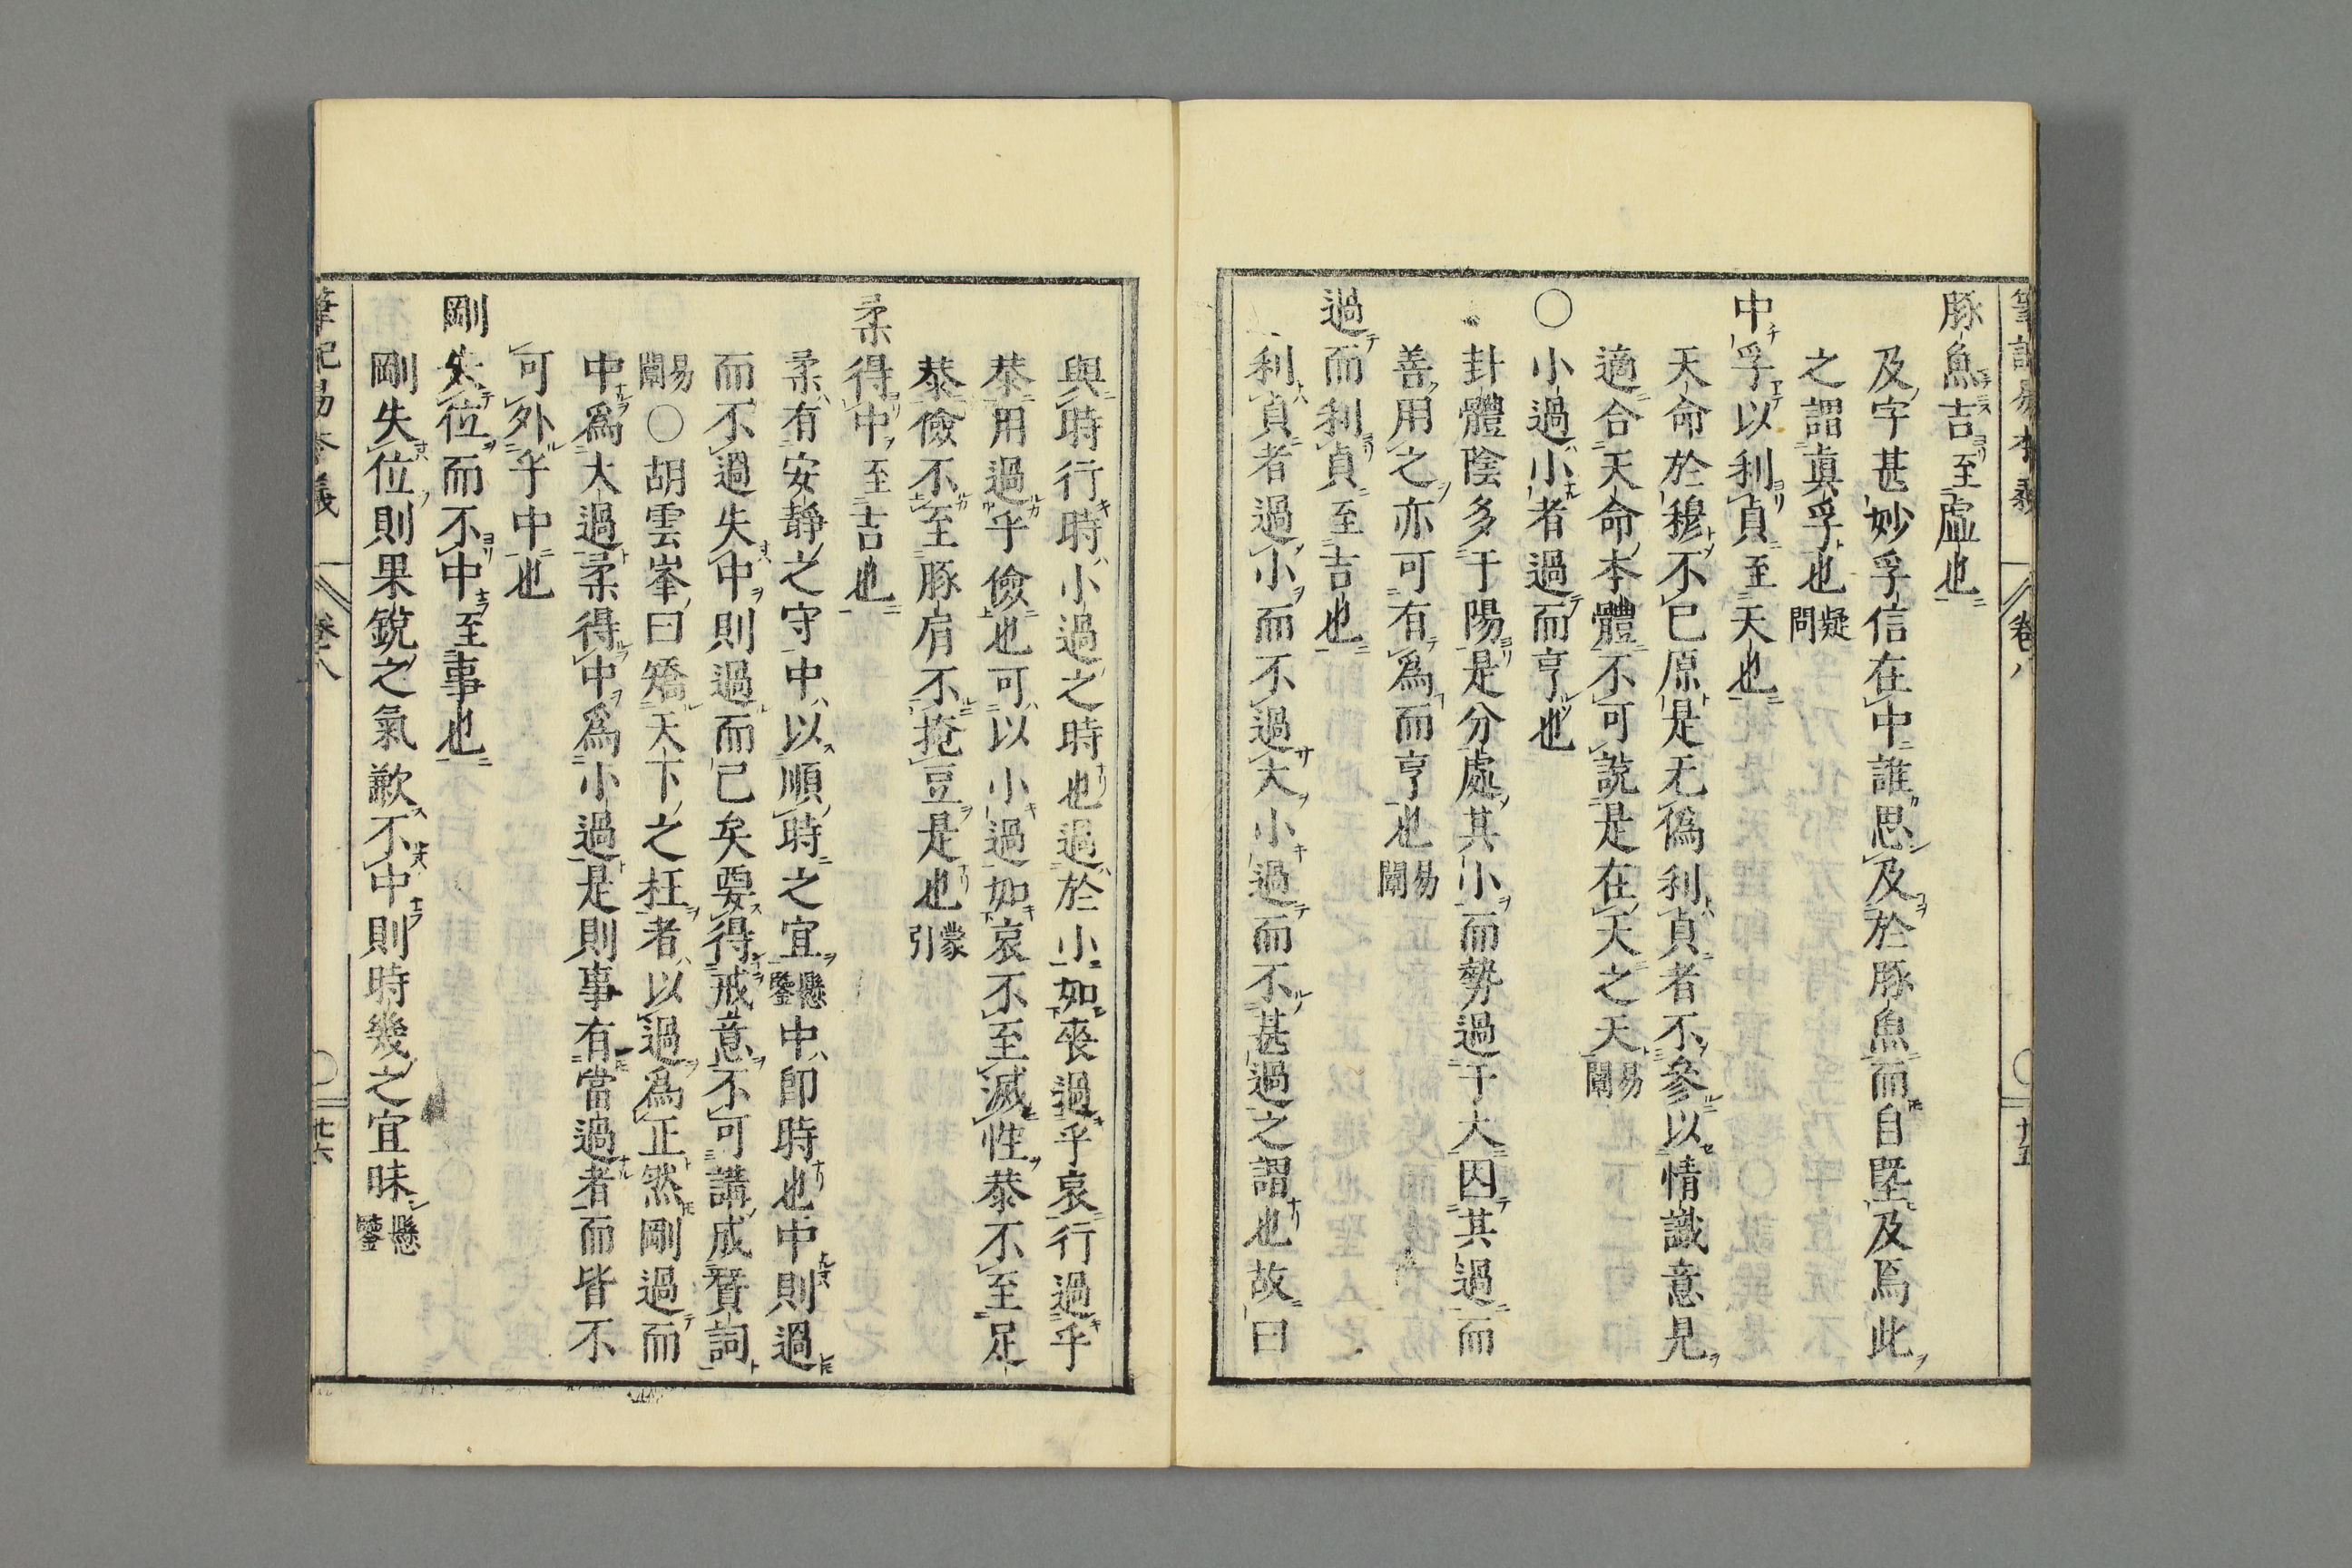 豚魚吉至虛也
及字甚妙孚信在中誰思及於豚魚而自堅及焉此
之謂眞孚也疑問
中孚以利貞至天也
天命於穆不已原是无僞利貞者不參以情識意見
適合天命本體不可說是在天之天易闡
〇小過小者過而亨也
卦體陰多于陽是分處其小而勢過于大因其過而
善用之亦可有爲而亨也易闡
過而利貞至吉也
利貞者過小而不過大小過而不甚過之謂也故曰
與時行時小過之時也過於小如喪過乎哀行過乎
恭用過乎儉也可以小過如哀不至滅性恭不至足
恭儉不至豚肩不掩豆是也蒙引
柔得中至吉也
柔有安靜之守中以順時之宜懸鑒中卽時也中則過
而不過失中則過而已矣要得戒意不可講成贊詞
易闡〇胡雲峯曰矯天下之枉者以過爲正然剛過而
中爲大過柔得中爲小過是則事有當過者而皆不
可外乎中也
剛失位而不中至事也
剛失位則果銳之氣歉不中則時幾之宜昧懸鑒
卷八